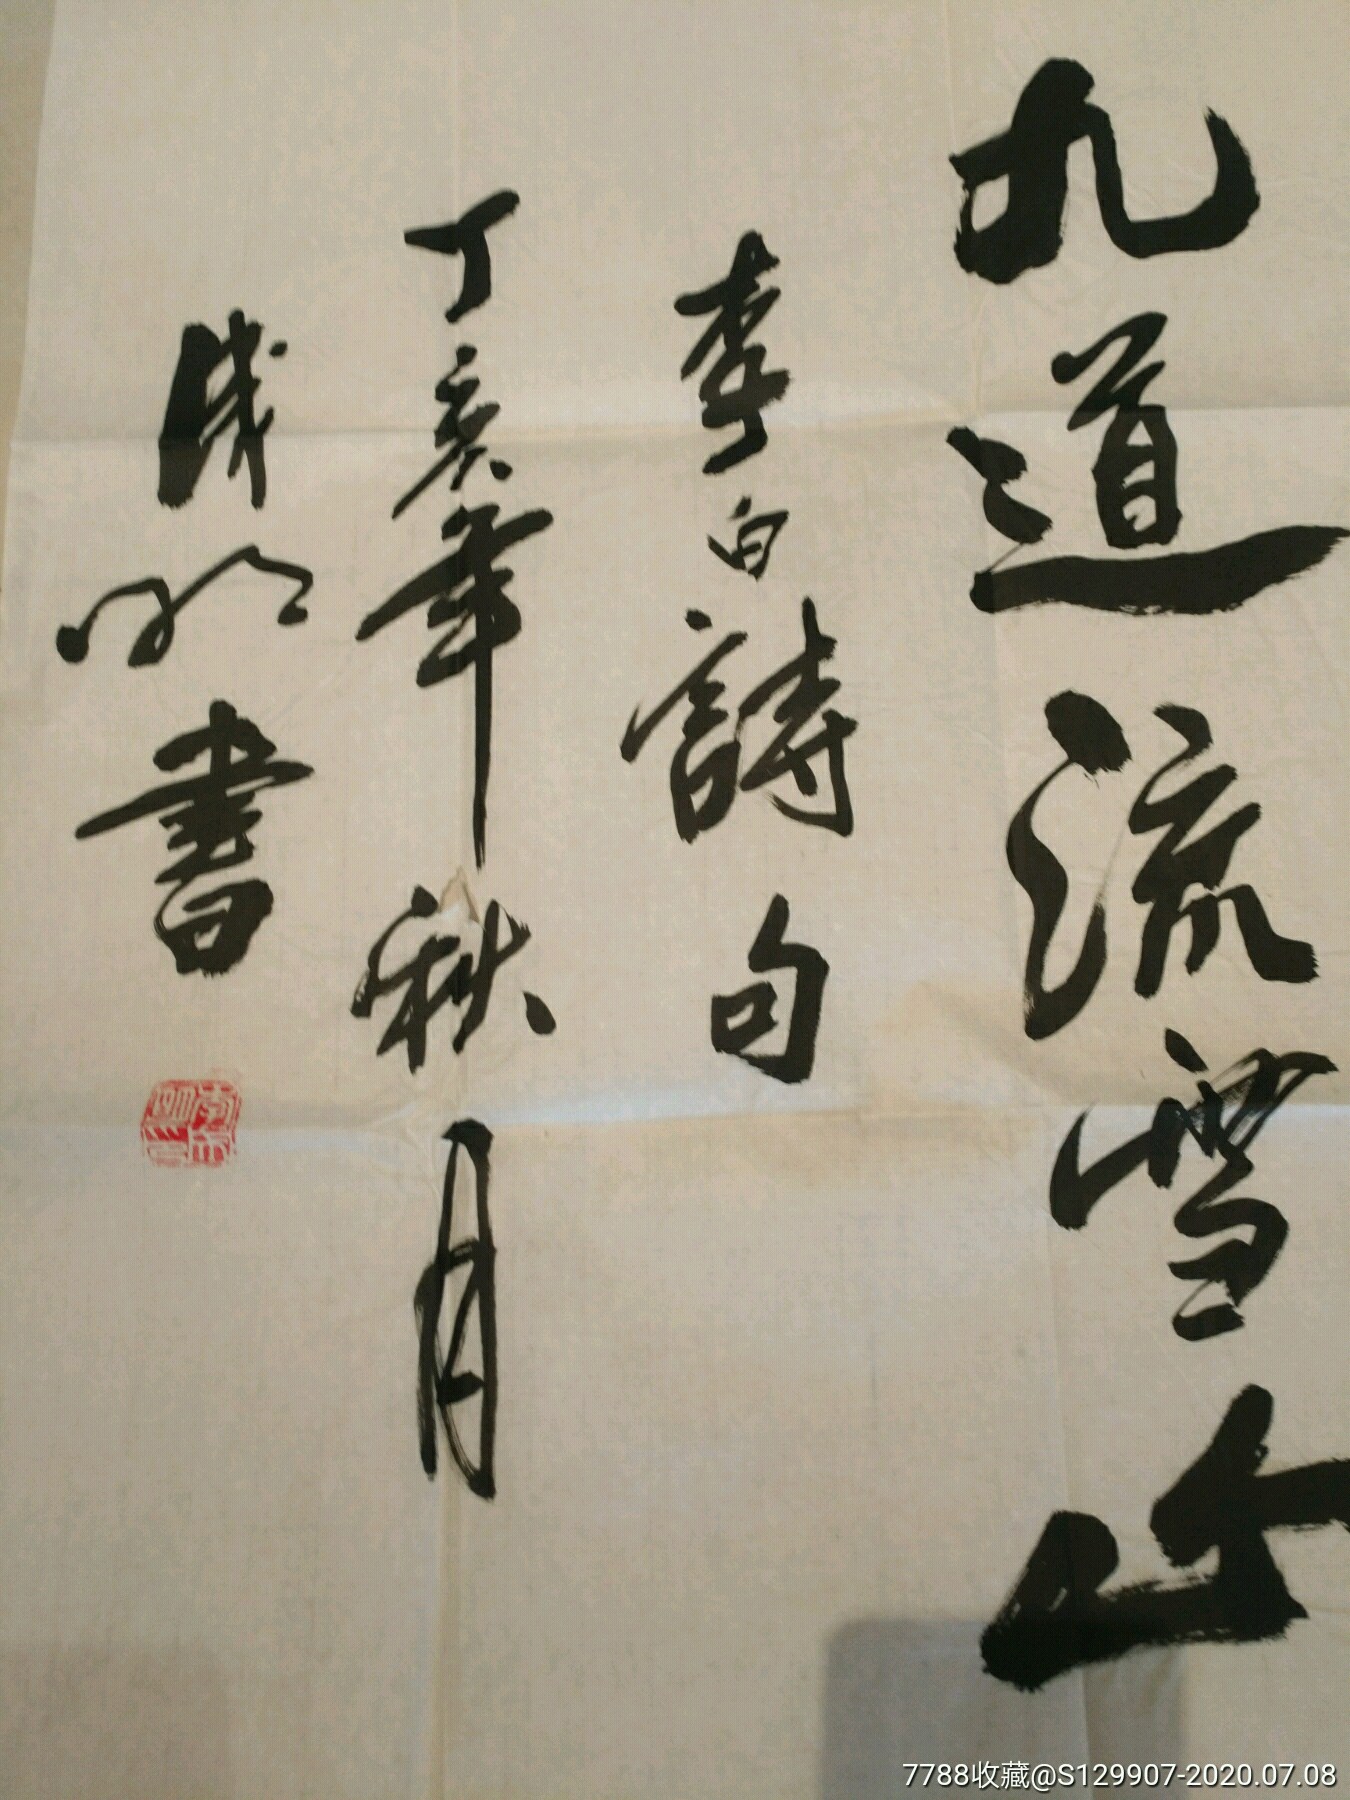 九道流雪山
李白詩句
丁亥年秋月
成明書
7788收藏@S129907-2020.07.08